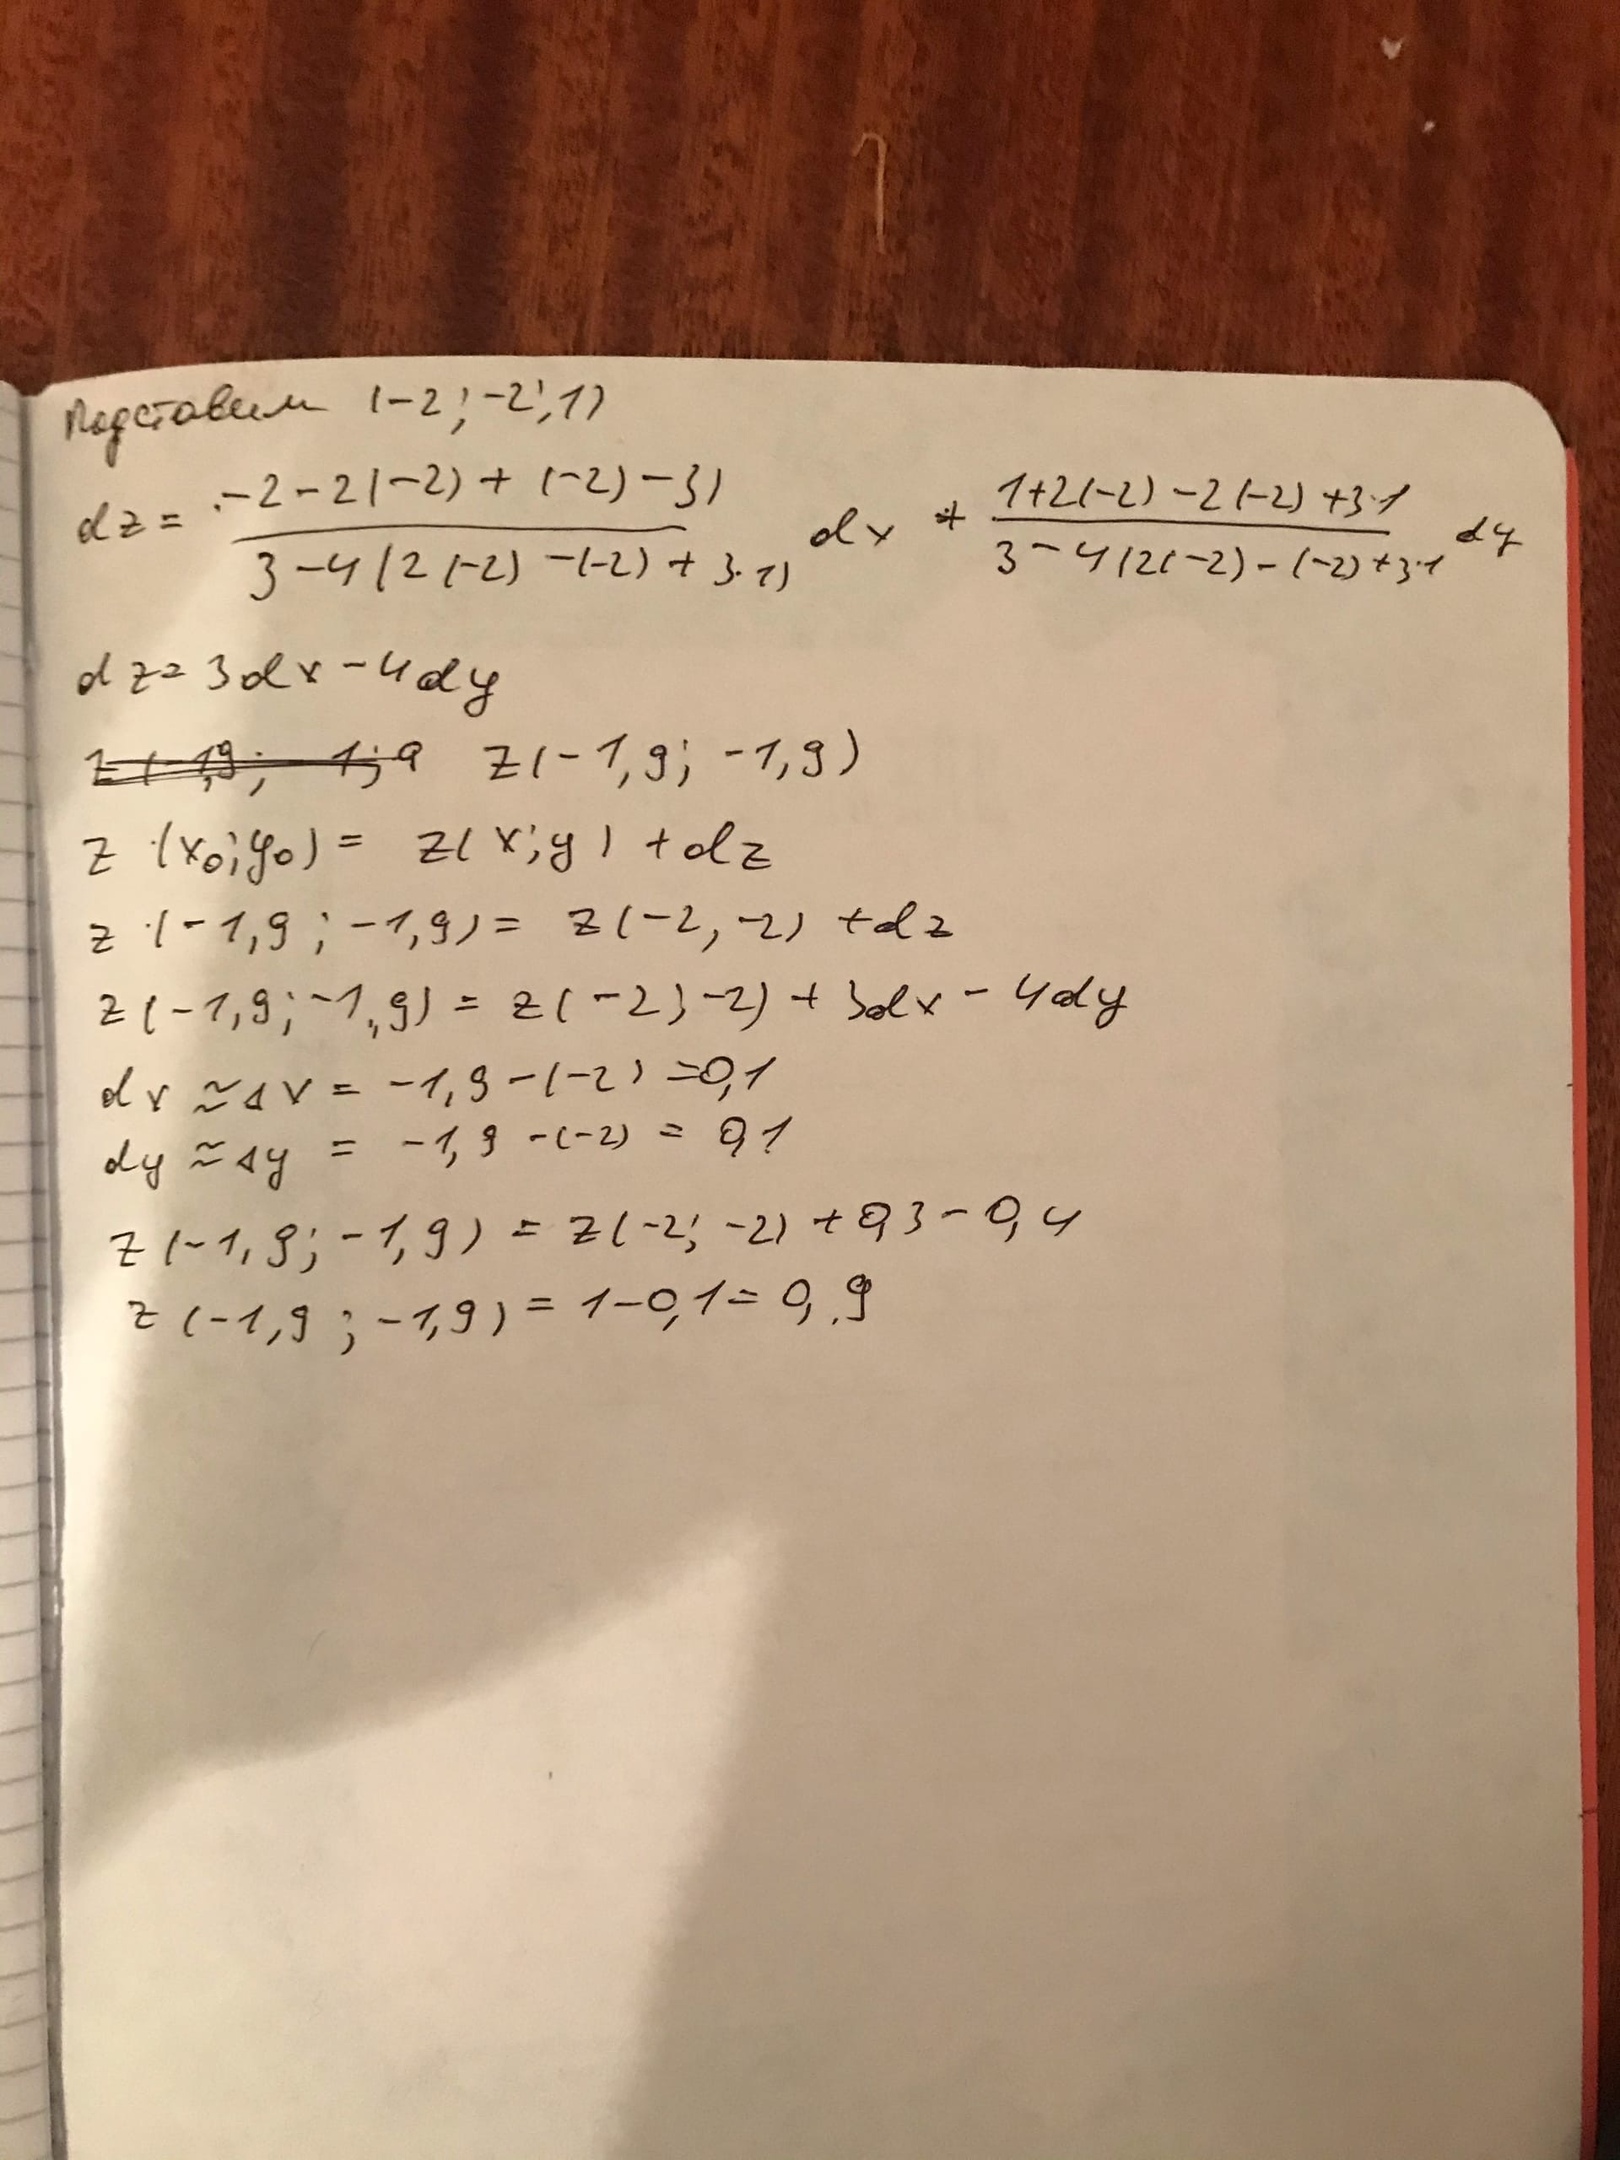 Подставим (-2; -2; 1)
dz = \frac{-2-2(-2)+(-2)-3)}{3-4(2(-2)-(-2)+3·1)} dx + \frac{1+2(-2)-2(-2)+3·1}{3-4(2(-2)-(-2)+3·1} dy
dz = 3dx - 4dy
z(-1,9; -1,9)
z (x₀; y₀) = z(x; y) + dz
z (-1,9; -1,9) = z(-2, -2) + dz
z(-1,9; -1,9) = z(-2; -2) + 3dx - 4dy
dx ≈ Δx = -1,9-(-2) = 0,1
dy ≈ Δy = -1,9-(-2) = 0,1
z (-1,9; -1,9) = z(-2; -2) + 0,3 - 0,4
z (-1,9; -1,9) = 1-0,1 = 0,9